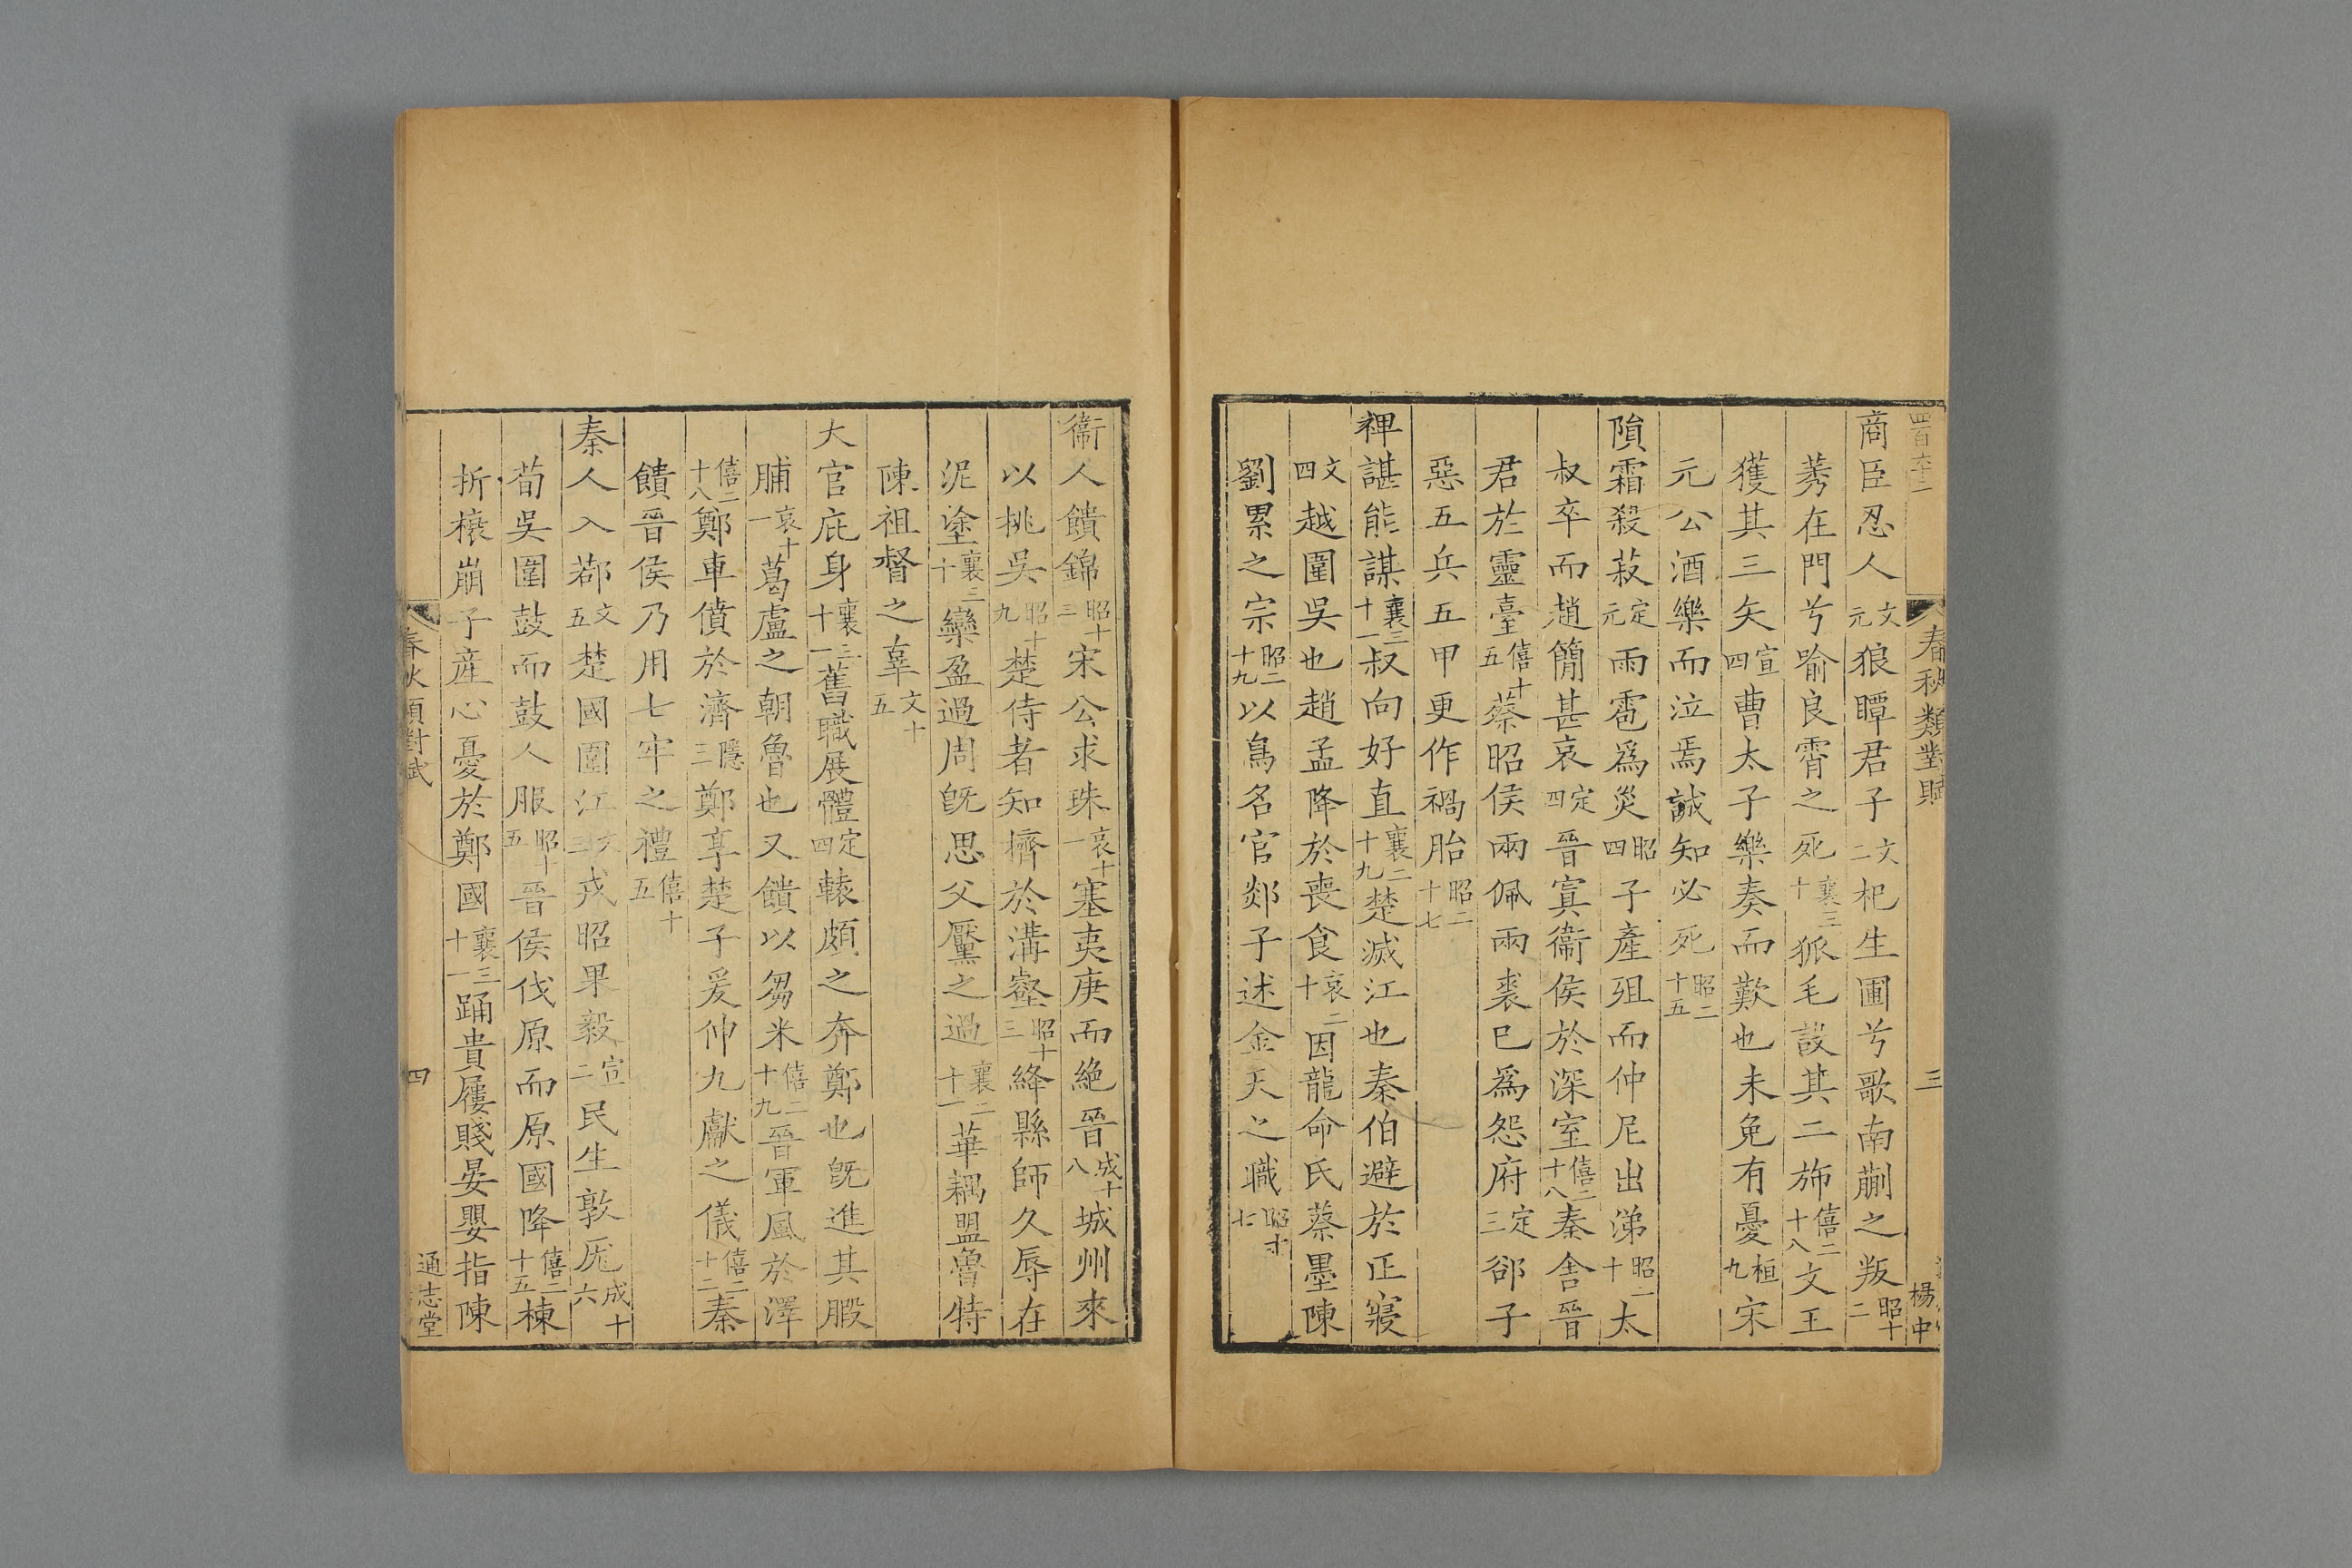 四百六十二 春秋類對賦 三 楊中
商臣忍人文元狼瞫君子文二杞生圃兮歌南蒯之叛昭十二
莠在門兮喻良霄之死襄三十狐毛設其二斾僖二十八文王
獲其三矢宣四曹太子樂奏而歎也未免有憂桓九宋
元公酒樂而泣焉誠知必死昭二十五
隕霜殺菽定元雨雹爲災昭四子產殂而仲尼出涕昭二十太
叔卒而趙簡甚哀定四晉寘衞侯於深室僖二十八秦舍晉
君於靈臺僖十五蔡昭侯兩佩兩裘巳爲怨府定三郤子
惡五兵五甲更作禍胎昭二十七
裨諶能謀襄三十一叔向好直襄二十九楚滅江也秦伯避於正寢
文四越圍吳也趙孟降於喪食哀二十因龍命氏蔡墨陳
劉累之宗昭二十九以鳥名官郯子述金天之職昭十七
衞人饋錦昭十三宋公求珠哀十一塞夷庚而絶晉成十八城州來
以挑吳昭十九楚侍者知擠於溝壑昭十三絳縣師久辱在
泥塗襄三十欒盈過周旣思父黶之過襄二十一華耦盟魯特
陳祖督之辠文十五
大官庇身襄三十一舊職展體定四轅頗之奔鄭也旣進其腶
脯哀十一葛盧之朝魯也又饋以芻米僖二十九晉軍風於澤
僖二十八鄭車僨於濟隱三鄭享楚子爰伸九獻之儀僖二十二秦
饋晉侯乃用七牢之禮僖十五
秦人入鄀文五楚國圍江文三戎昭果毅宣二民生敦厖成十六
荀吳圍鼓而鼓人服昭十五晉侯伐原而原國降僖二十五棟
折榱崩子産心憂於鄭國襄三十一踊貴屨賤晏嬰指陳
春秋類對賦 四 通志堂